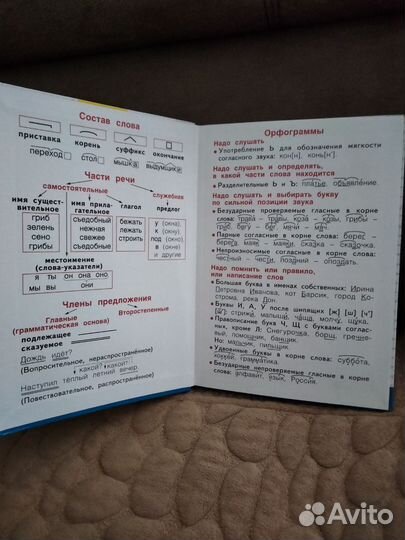 Состав слова
приставка корень суффикс окончание
переход стол мышка выдумщики
Части речи
самостоятельные служебная
имя сущест- имя прила- глагол предлог
вительное гательное
гриб съедобный бежать у (окна)
зелень нежная лежать к (окну)
сено свежее строить под (окном)
грибы съедобные в (окне)
и другие
местоимение
(слова-указатели)
я ты он она оно
мы вы они
Члены предложения
Главные Второстепенные
(грамматическая основа)
подлежащее
сказуемое
какой? какой?
Дождь идёт?
(Вопросительное, нераспространённое)
Наступил тёплый летний вечер.
(Повествовательное, распространённое)
Орфограммы
Надо слушать
• Употребление Ь для обозначения мягкости
согласного звука: кон[н], конь[н'].
Надо слушать и определять,
в какой части слова находится
• Разделительные Ь и Ъ: платье, объявление.
Надо слушать и выбирать букву
по сильной позиции звука
• Безударные проверяемые гласные в корне
слова: трава – травы, коза – козы, грибы –
гриб, бегу – бег, мячи – мяч.
• Парные согласные в корне слова: берег –
берега, маяк – маяки, сказка – сказочка.
• Непроизносимые согласные в корне слова:
честный – чести, поздний – опоздать.
Надо помнить или правило,
или написание слов
• Большая буква в именах собственных: Ирина
Петровна Иванова, кот Барсик, город Ко-
строма, река Дон.
• Буквы И, А, У после шипящих [ж] [ш] [ч']
[щ']: стрижи, малыши, чаща, чулок, щука.
• Правописание букв Ч, Щ с буквами соглас-
ных, кроме Л: Снегурочка, борщ, гречне-
вый, помощник, овощной.
Но: мальчик, пильщик.
• Удвоенные буквы в корне слова: суббота,
хоккей, грамматика.
• Безударные непроверяемые гласные в корне
слова: алфавит, язык, Россия.
Avito